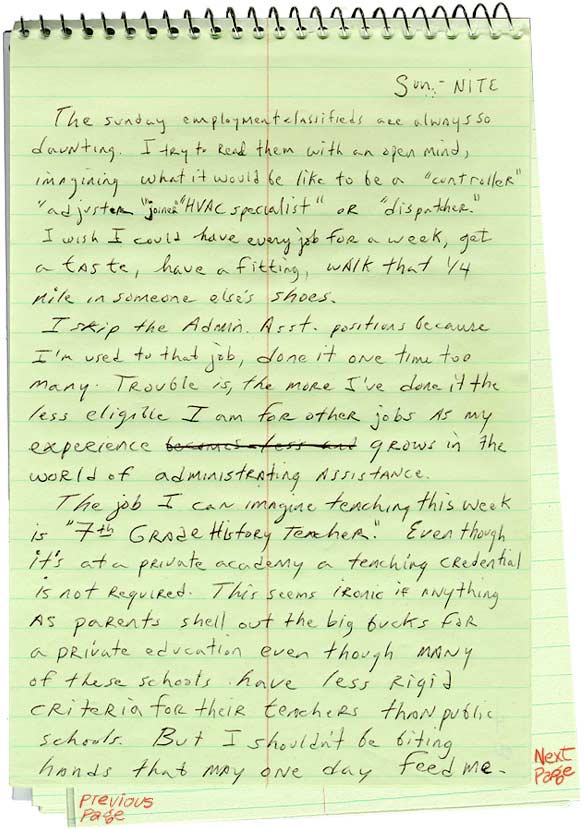 Sun.- NITE
The sunday employment classifieds are always so
daunting. I try to Read them with an open mind,
imagining what it would be like to be a "controller"
"adjuster "joiner" "HVAC specialist" OR "dispatcher."
I wish I could have every job for a week, get
a taste, have a fitting, walk that 1/4
mile in someone else's shoes.
I skip the Admin. Asst. positions because
I'm used to that job, done it one time too
many. Trouble is, the more I've done it the
less eligible I am for other jobs as my
experience becomes less and grows in the
world of administrating assistance.
The job I can imagine teaching this week
is "7th Grade History Teacher." Even though
it's at a private academy a teaching credential
is not required. This seems ironic if anything
as parents shell out the big bucks for
a private education even though many
of these schools have less rigid
criteria for their teachers than public
schools. But I shouldn't be biting
hands that may one day feed me.
Next
Page
Previous
Page